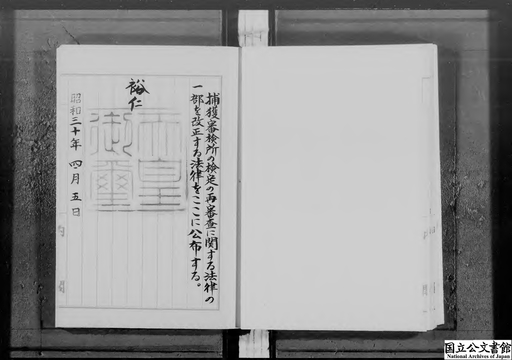 捕獲審検所の検定の再審査に関する法律の
一部を改正する法律をここに公布する。
裕仁
天皇
御璽
昭和三十年四月五日
国立公文書館
National Archives of Japan